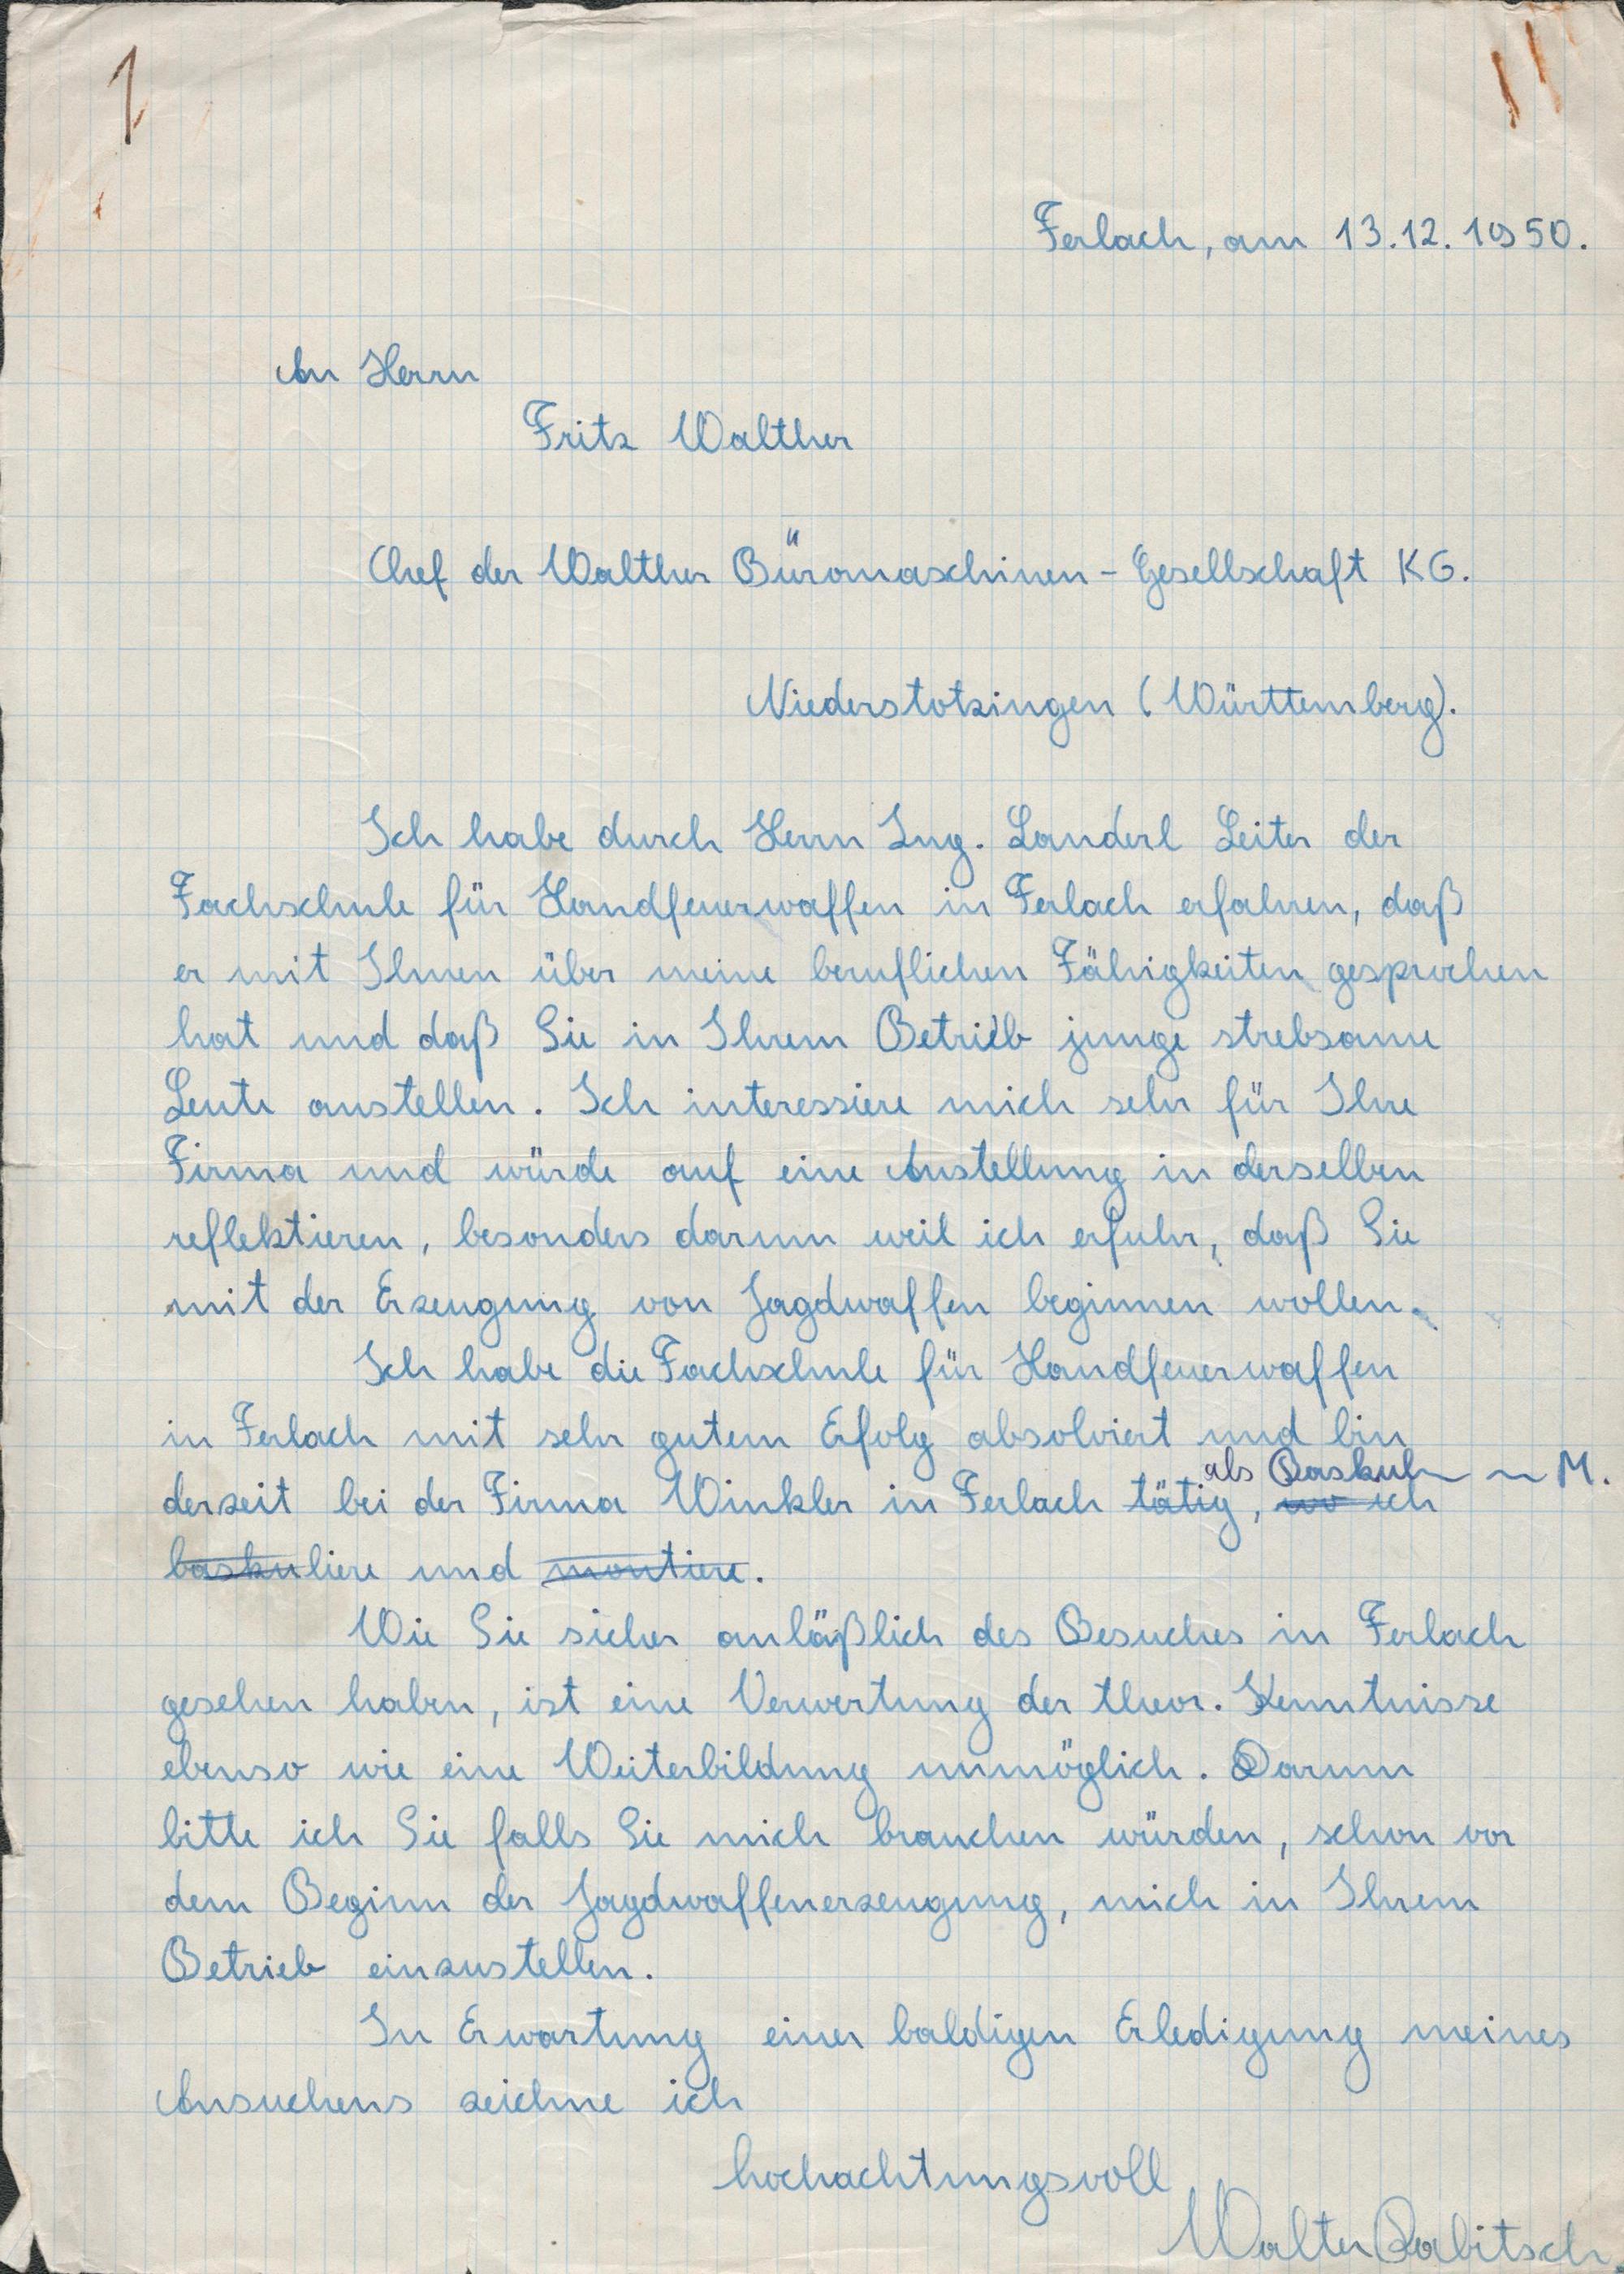 1
11
Ferlach, am 13.12.1950.
An Herrn
Fritz Walther
Chef der Walther Büromaschinen-Gesellschaft KG.
Niederstotzingen (Württemberg).
Ich habe durch Herrn Ing. Landerl Leiter der
Fachschule für Handfeuerwaffen in Ferlach erfahren, daß
er mit Ihnen über meine beruflichen Fähigkeiten gesprochen
hat und daß Sie in Ihrem Betrieb junge strebsame
Leute anstellen. Ich interessiere mich sehr für Ihre
Firma und würde auf eine Anstellung in derselben
reflektieren, besonders darum weil ich erfuhr, daß Sie
mit der Erzeugung von Jagdwaffen beginnen wollen.
Ich habe die Fachschule für Handfeuerwaffen
in Ferlach mit sehr gutem Erfolg absolviert und bin
als M.
derzeit bei der Firma Winkler in Ferlach tätig, wo ich
baskuliere und montiere.
Wie Sie sicher anläßlich des Besuches in Ferlach
gesehen haben, ist eine Verwertung der theor. Kenntnisse
ebenso wie eine Weiterbildung unmöglich. Darum
bitte ich Sie falls Sie mich brauchen würden, schon vor
dem Beginn der Jagdwaffenerzeugung, mich in Ihrem
Betrieb einzustellen.
In Erwartung einer baldigen Erledigung meines
Ansuchens zeichne ich
hochachtungsvoll
Walter Rabitsch